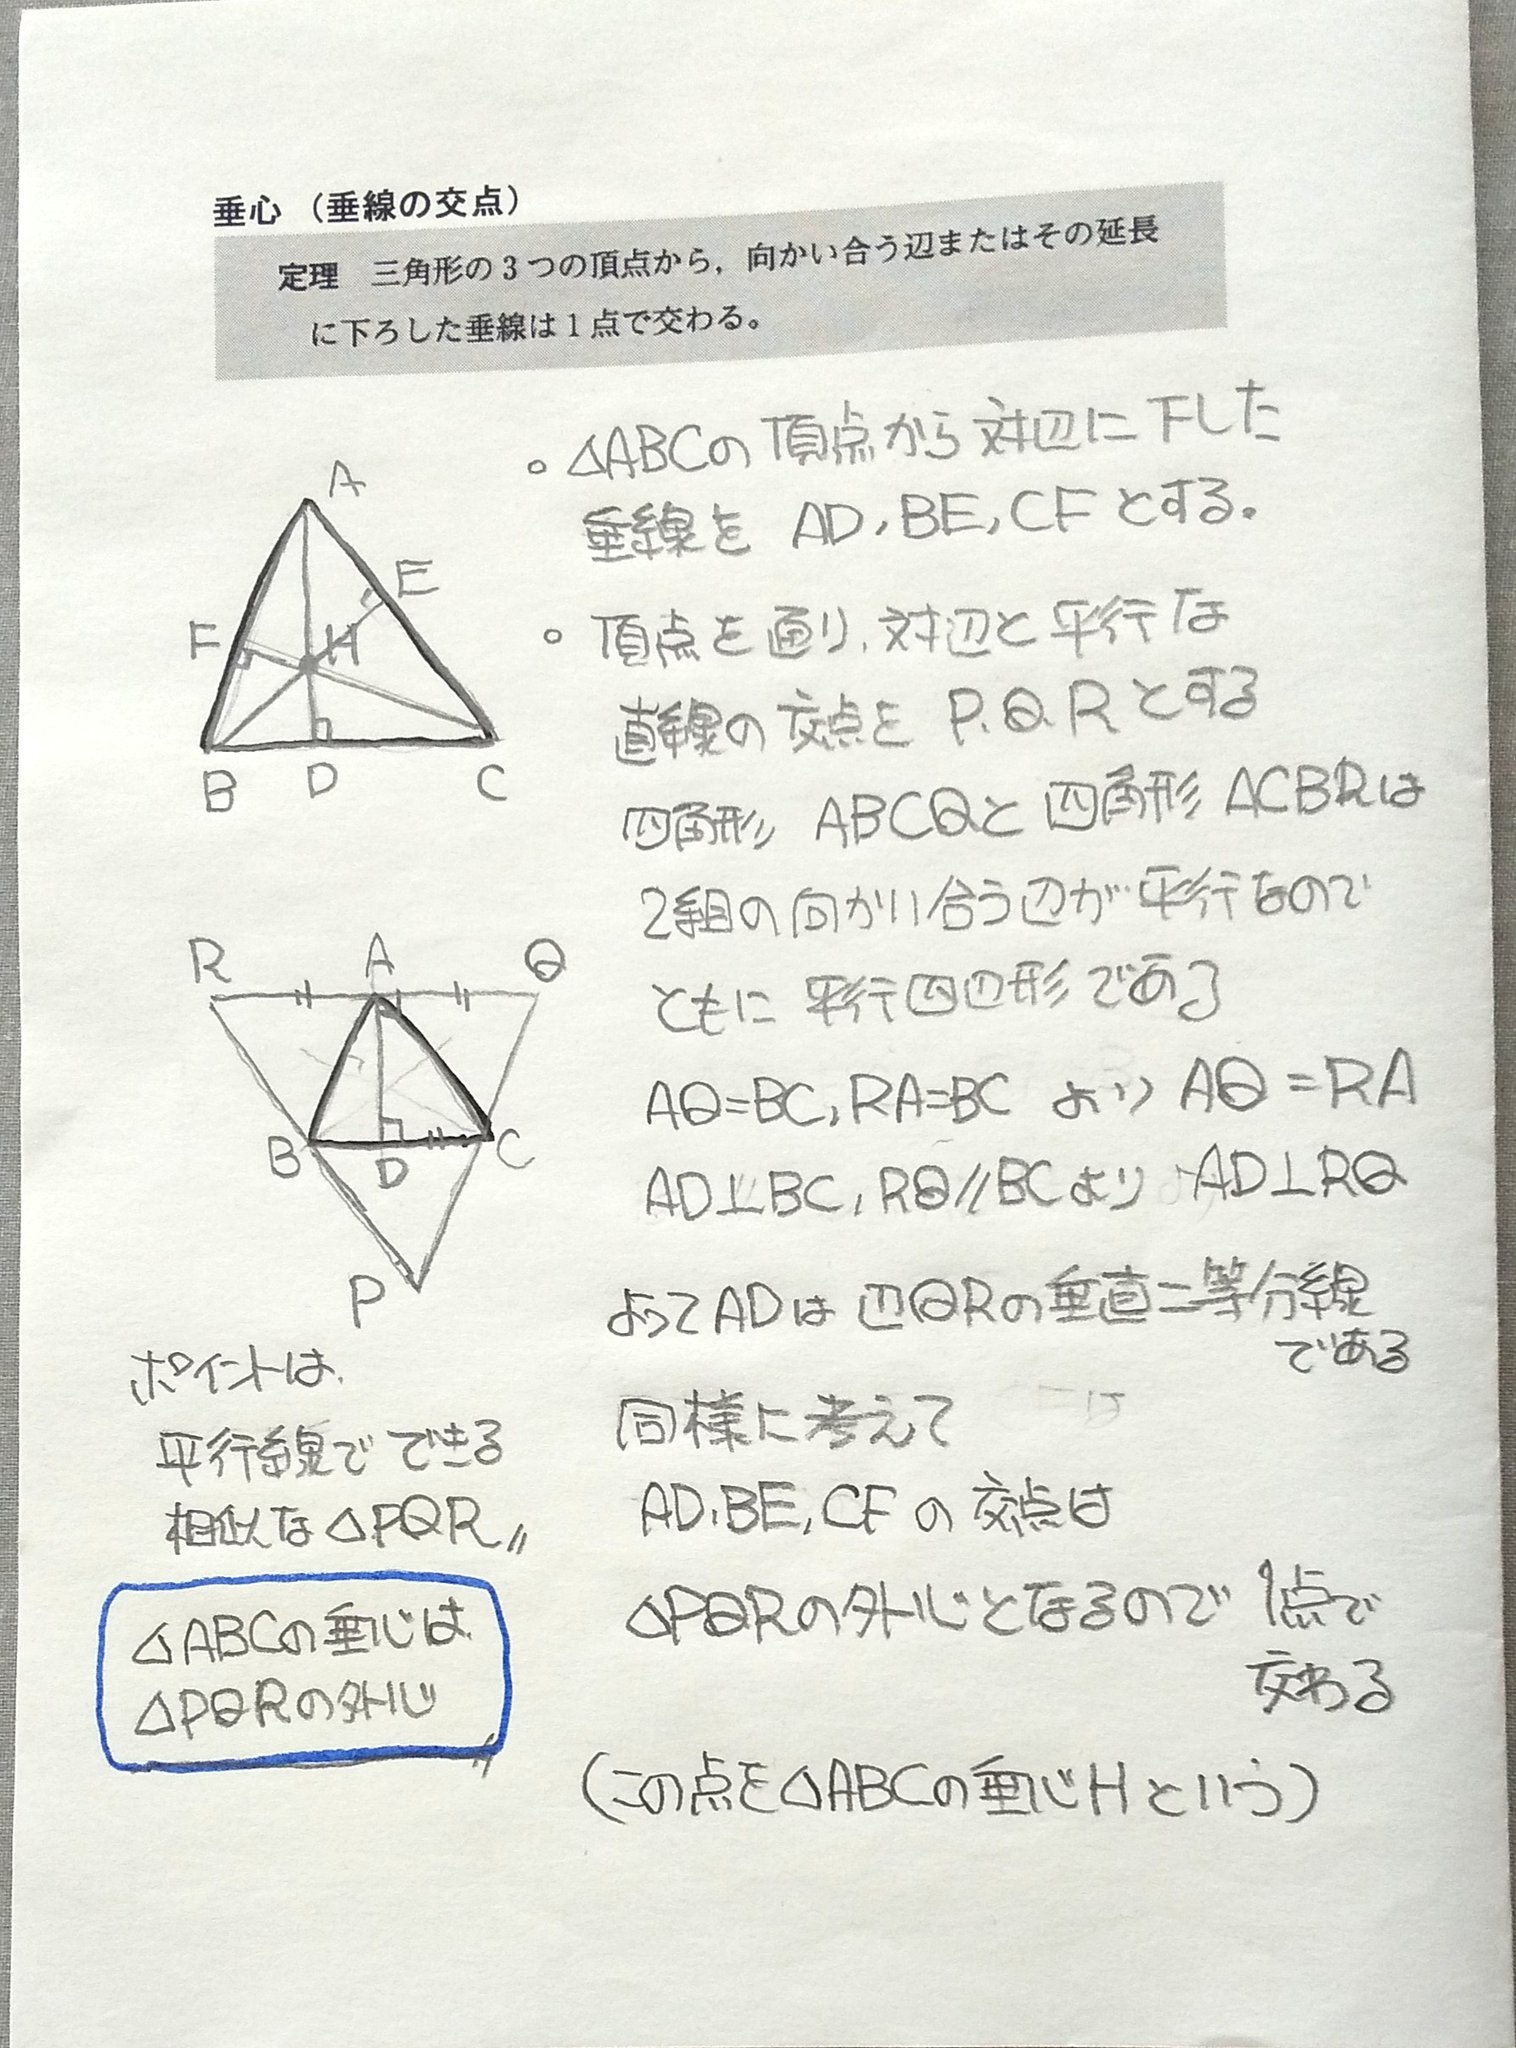 垂心（垂線の交点）
定理　三角形の3つの頂点から，向かい合う辺またはその延長
に下ろした垂線は1点で交わる。
。△ABCの頂点から対辺に下した
垂線を AD，BE，CF とする。
A
E
F
H
B
D
C
。頂点を通り，対辺と平行な
直線の交点を P，Q，R とする
四角形 ABCQと四角形 ACBRは
2組の向かい合う辺が平行なので
ともに平行四辺形である
AQ=BC，RA=BC より AQ=RA
AD⊥BC，RQ//BCより AD⊥RQ
よってADは辺QRの垂直二等分線
である
R
A
Q
B
D
C
P
同様に考えて
AD，BE，CFの交点は
△PQRの外心となるので 1点で
交わる
(この点を△ABCの垂心Hという)
ポイントは，
平行線でできる
相似な△PQR〃
△ABCの垂心は，
△PQRの外心